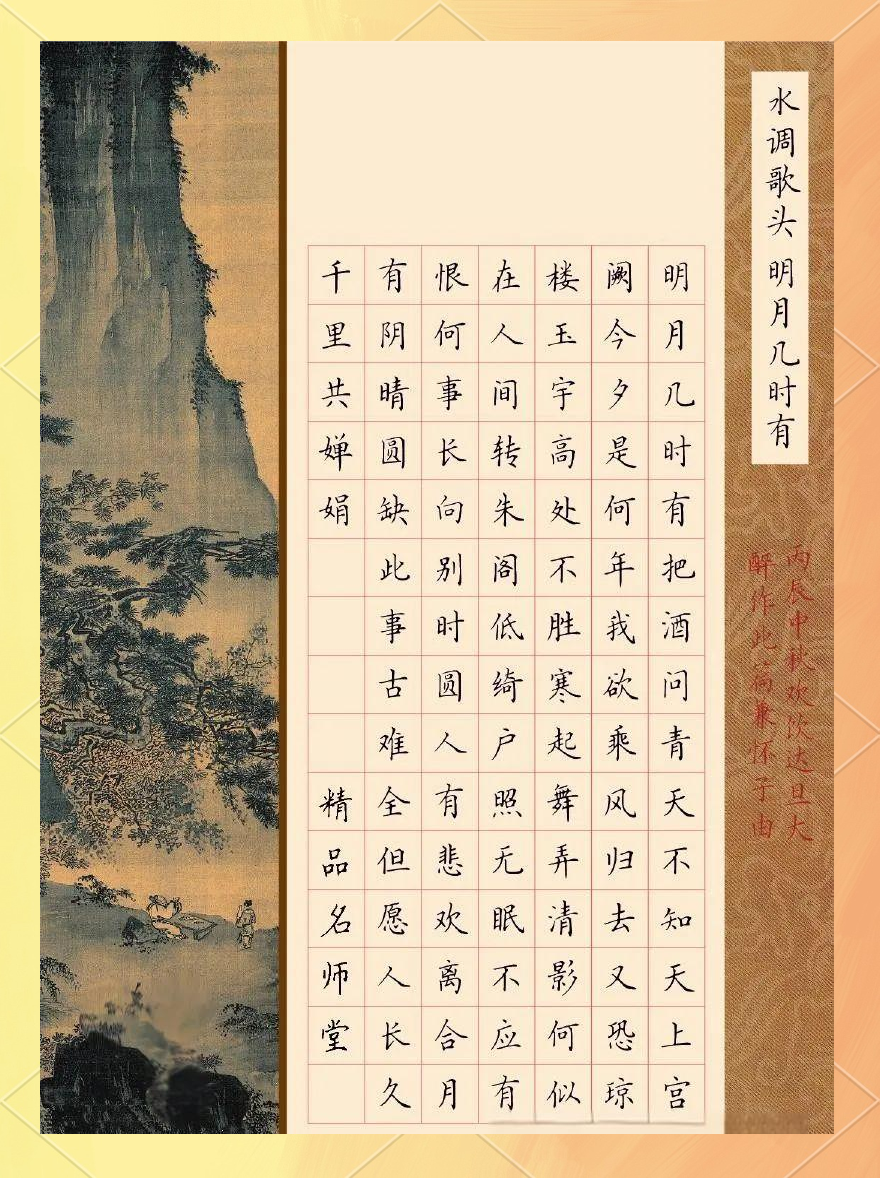 水调歌头 明月几时有
丙辰中秋欢饮达旦大
醉作此篇兼怀子由
明月几时有把酒问青天不知天上宫
阙今夕是何年我欲乘风归去又恐琼
楼玉宇高处不胜寒起舞弄清影何似
在人间转朱阁低绮户照无眠不应有
恨何事长向别时圆人有悲欢离合月
有阴晴圆缺此事古难全但愿人长久
千里共婵娟 精品名师堂